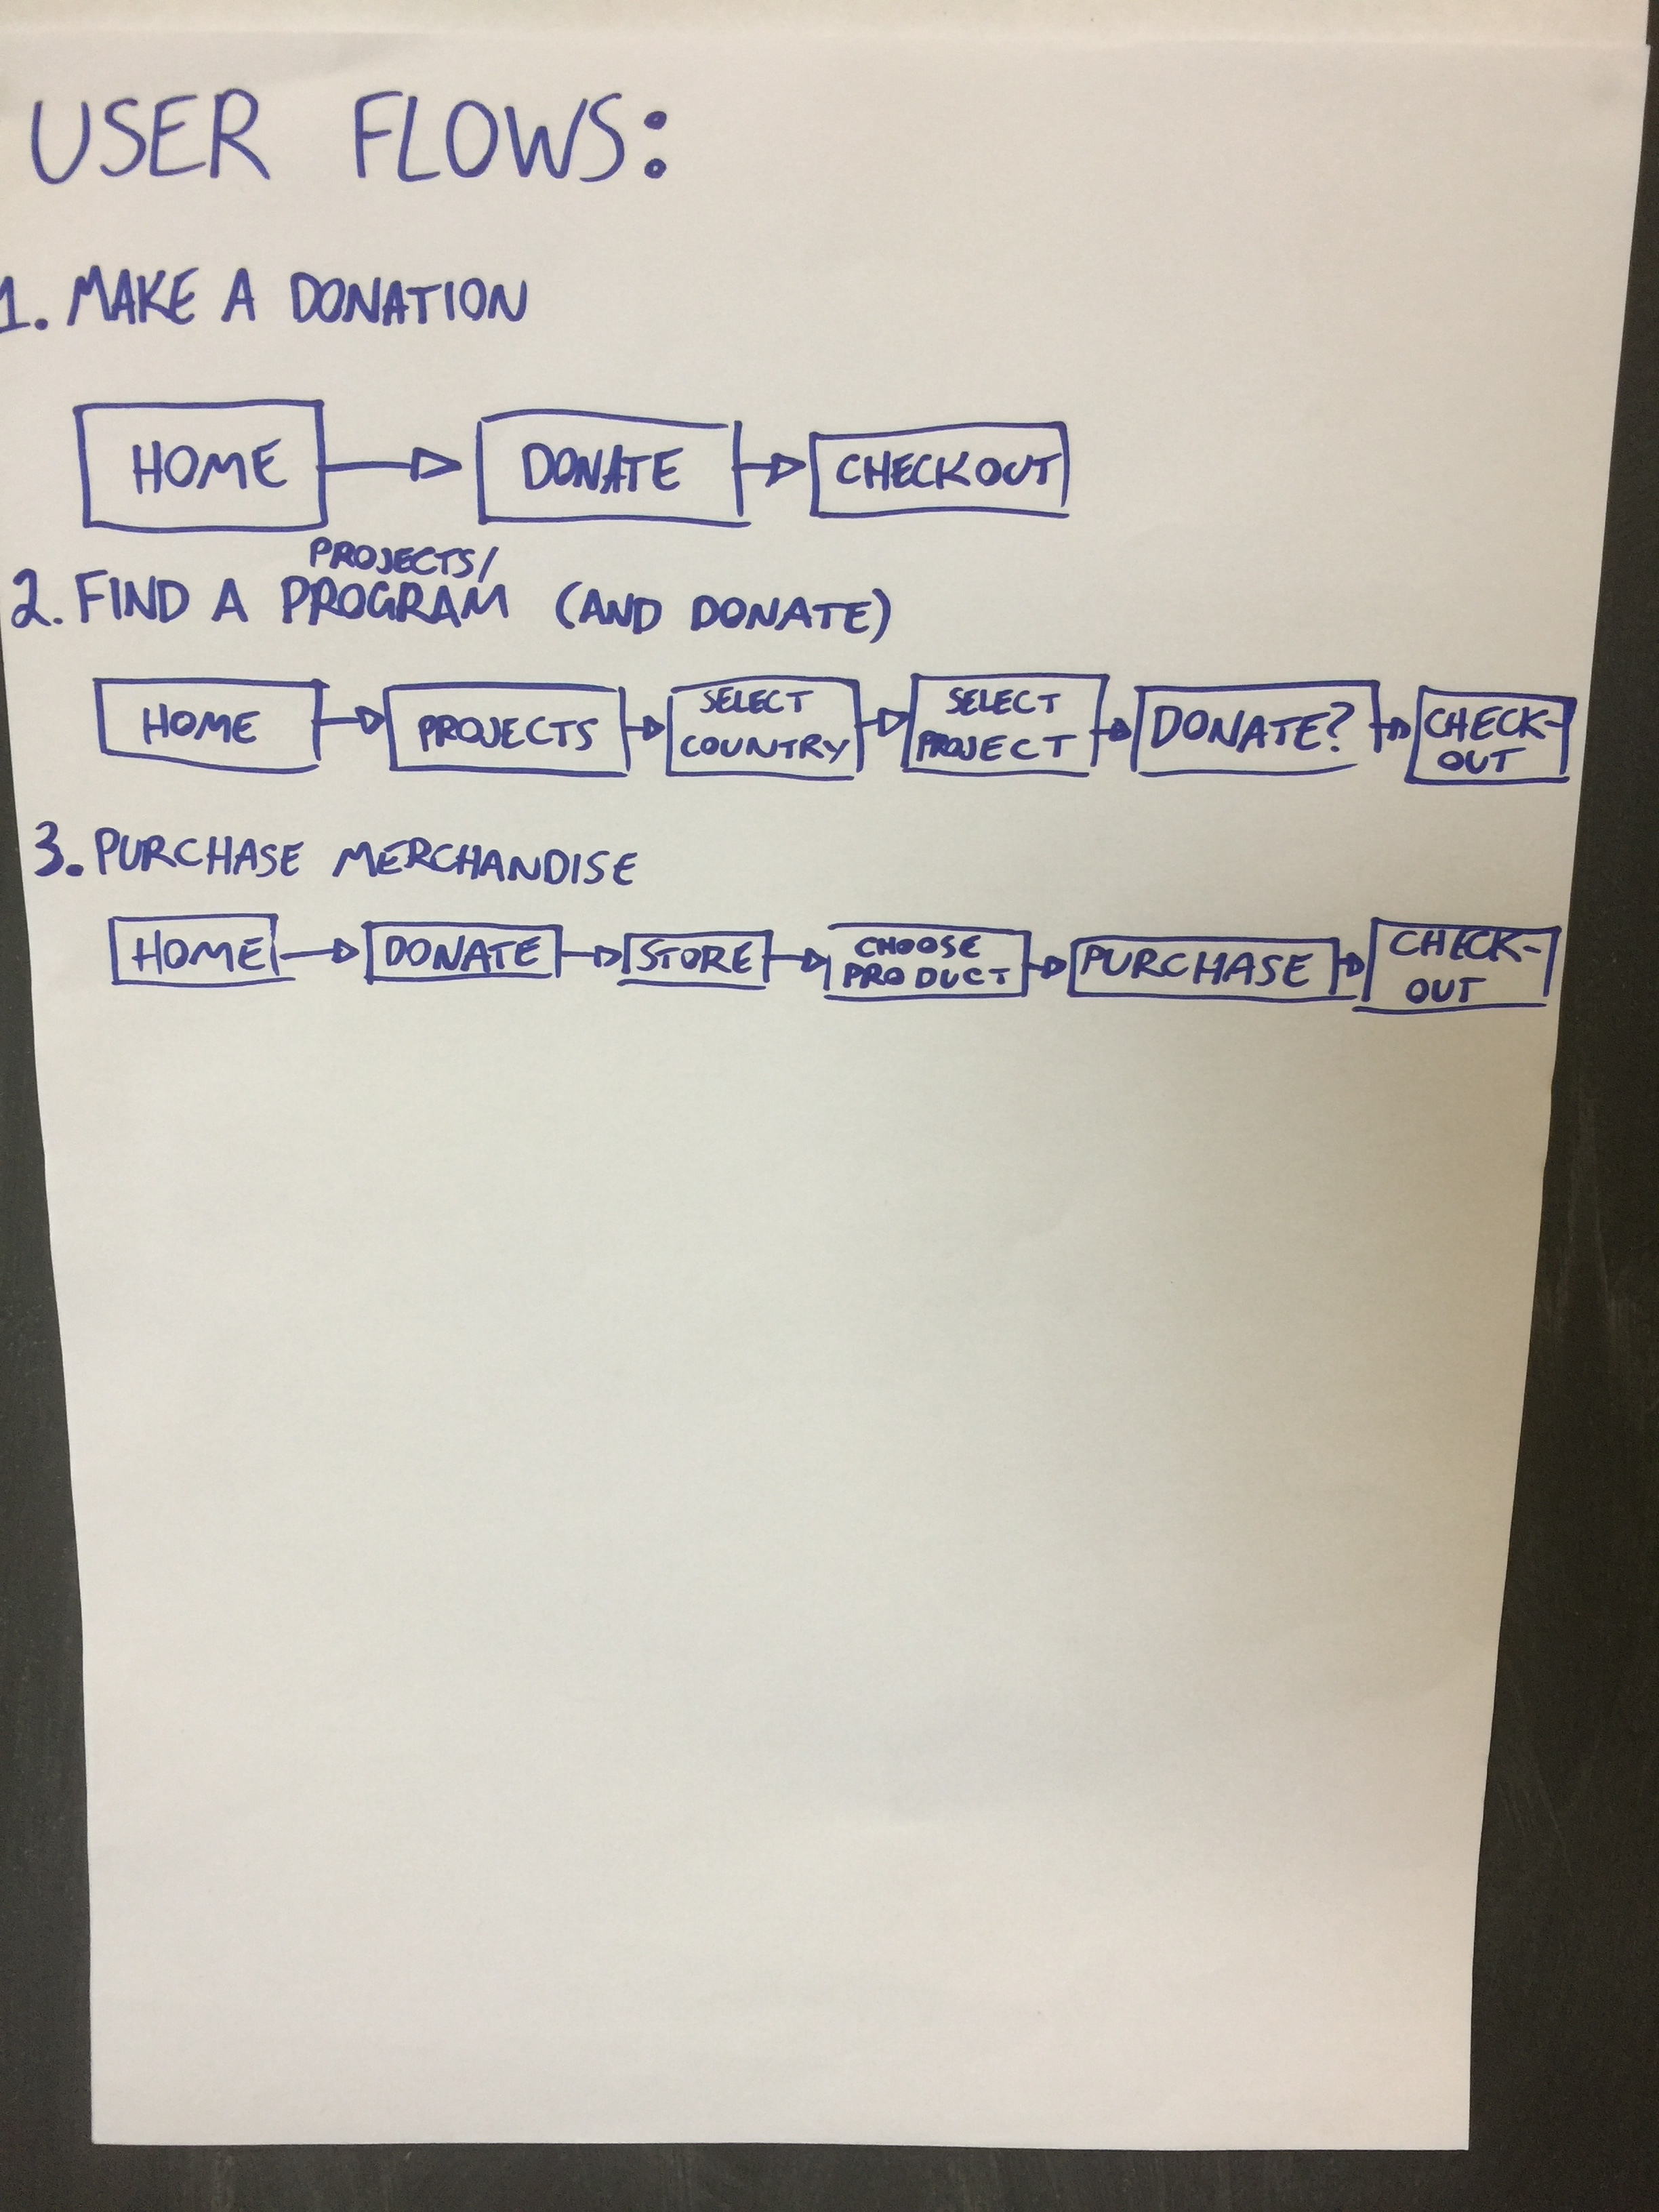 USER FLOWS:
1. MAKE A DONATION
HOME DONATE CHECKOUT
PROJECTS/
2. FIND A PROGRAM (AND DONATE)
HOME PROJECTS SELECT COUNTRY SELECT PROJECT DONATE? CHECK-OUT
3. PURCHASE MERCHANDISE
HOME DONATE STORE CHOOSE PRODUCT PURCHASE CHECK-OUT